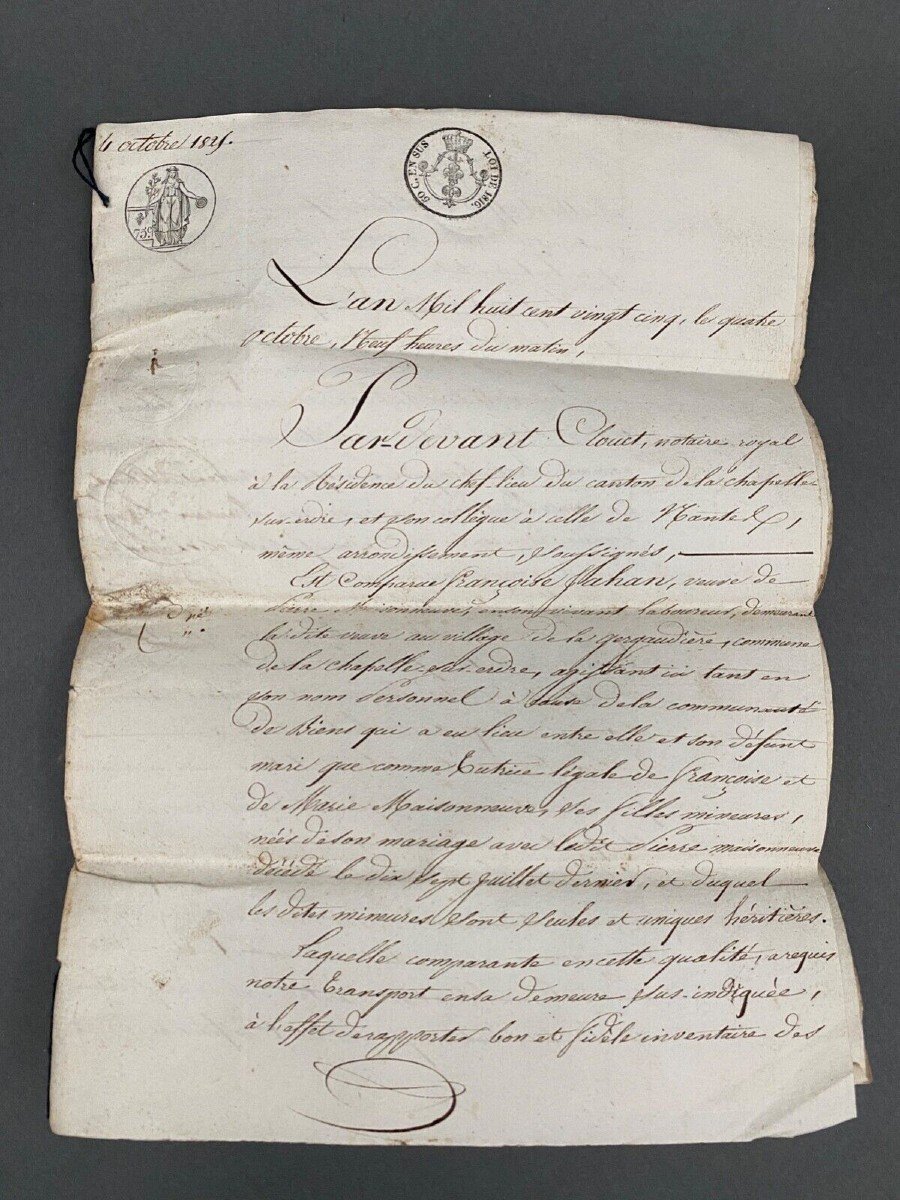 4 octobre 1825.
50 C. EN SUS LOI DE 1816.
75c
L'an Mil huit cent vingt cinq, le quatre
octobre, Neuf heures du matin,
Par-devant Clouet, notaire royal
à la Résidence du chef-lieu du canton de la chapelle-
sur-erdre, et son collègue à celle de Nantes,
même arrondissement, soussignés,
Est Comparue françoise Jahan, veuve de
Pierre Maisonneuve, en son vivant laboureur, demeurant
la dite veuve au village de la gergaudière, commune
de la chapelle-sur-erdre, agissant ici tant en
son nom Personnel à cause de la communauté
de Biens qui a eu lieu entre elle et son défunt
mari que comme Tutrice légale de françoise et
de Marie Maisonneuve, ses filles mineures,
nées de son mariage avec ledit Pierre maisonneuve
décédé le dix sept juillet dernier, et duquel
les dites mineures sont seules et uniques héritières.
Laquelle comparante en cette qualité, a requis
notre Transport en sa demeure sus-indiquée,
à l'effet de rapporter bon et fidèle inventaire des